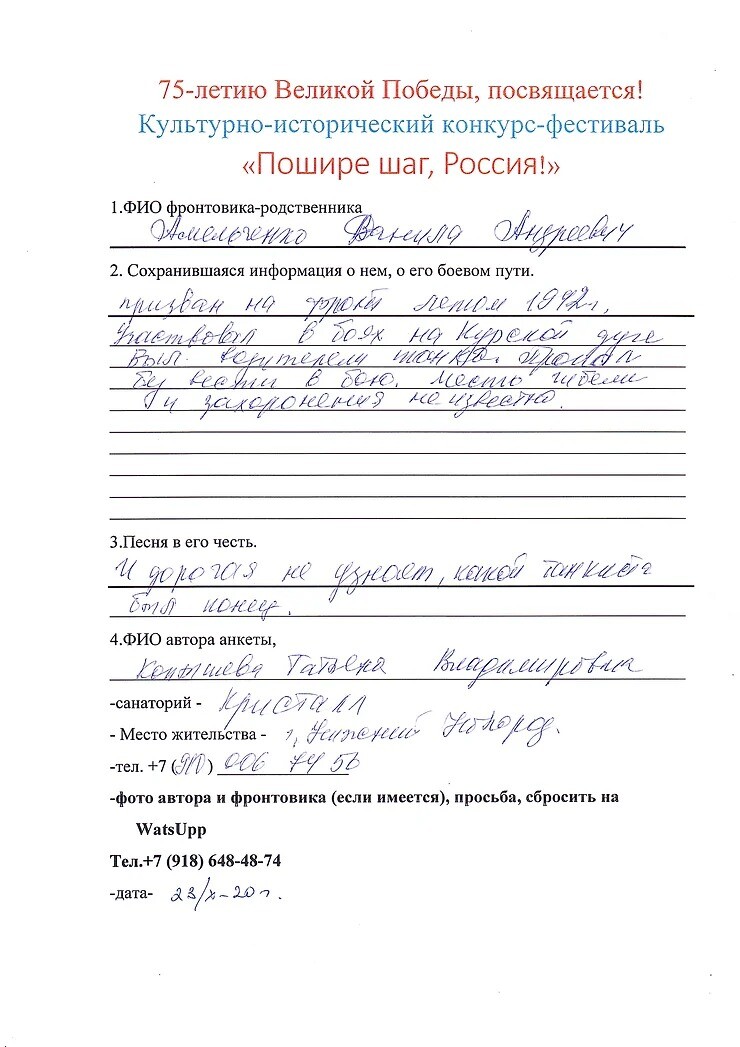 75-летию Великой Победы, посвящается!
Культурно-исторический конкурс-фестиваль
«Пошире шаг, Россия!»
1.ФИО фронтовика-родственника
Амельченко Данила Андреевич
2. Сохранившаяся информация о нем, о его боевом пути.
призван на фронт летом 1942г,
Участвовал в боях на Курской дуге
Был водителем танка. Пропал
без вести в бою. Место гибели
и захоронения не известно.
3.Песня в его честь.
И дорогая не узнает, какой танкиста
был конец.
4.ФИО автора анкеты,
Татьяна Владимировна
-санаторий - Кристалл
- Место жительства - г. Нижний Новгород.
-тел. +7 ( ) 006 74 56
-фото автора и фронтовика (если имеется), просьба, сбросить на
WatsUpp
Тел.+7 (918) 648-48-74
-дата- 23/X-20 г.